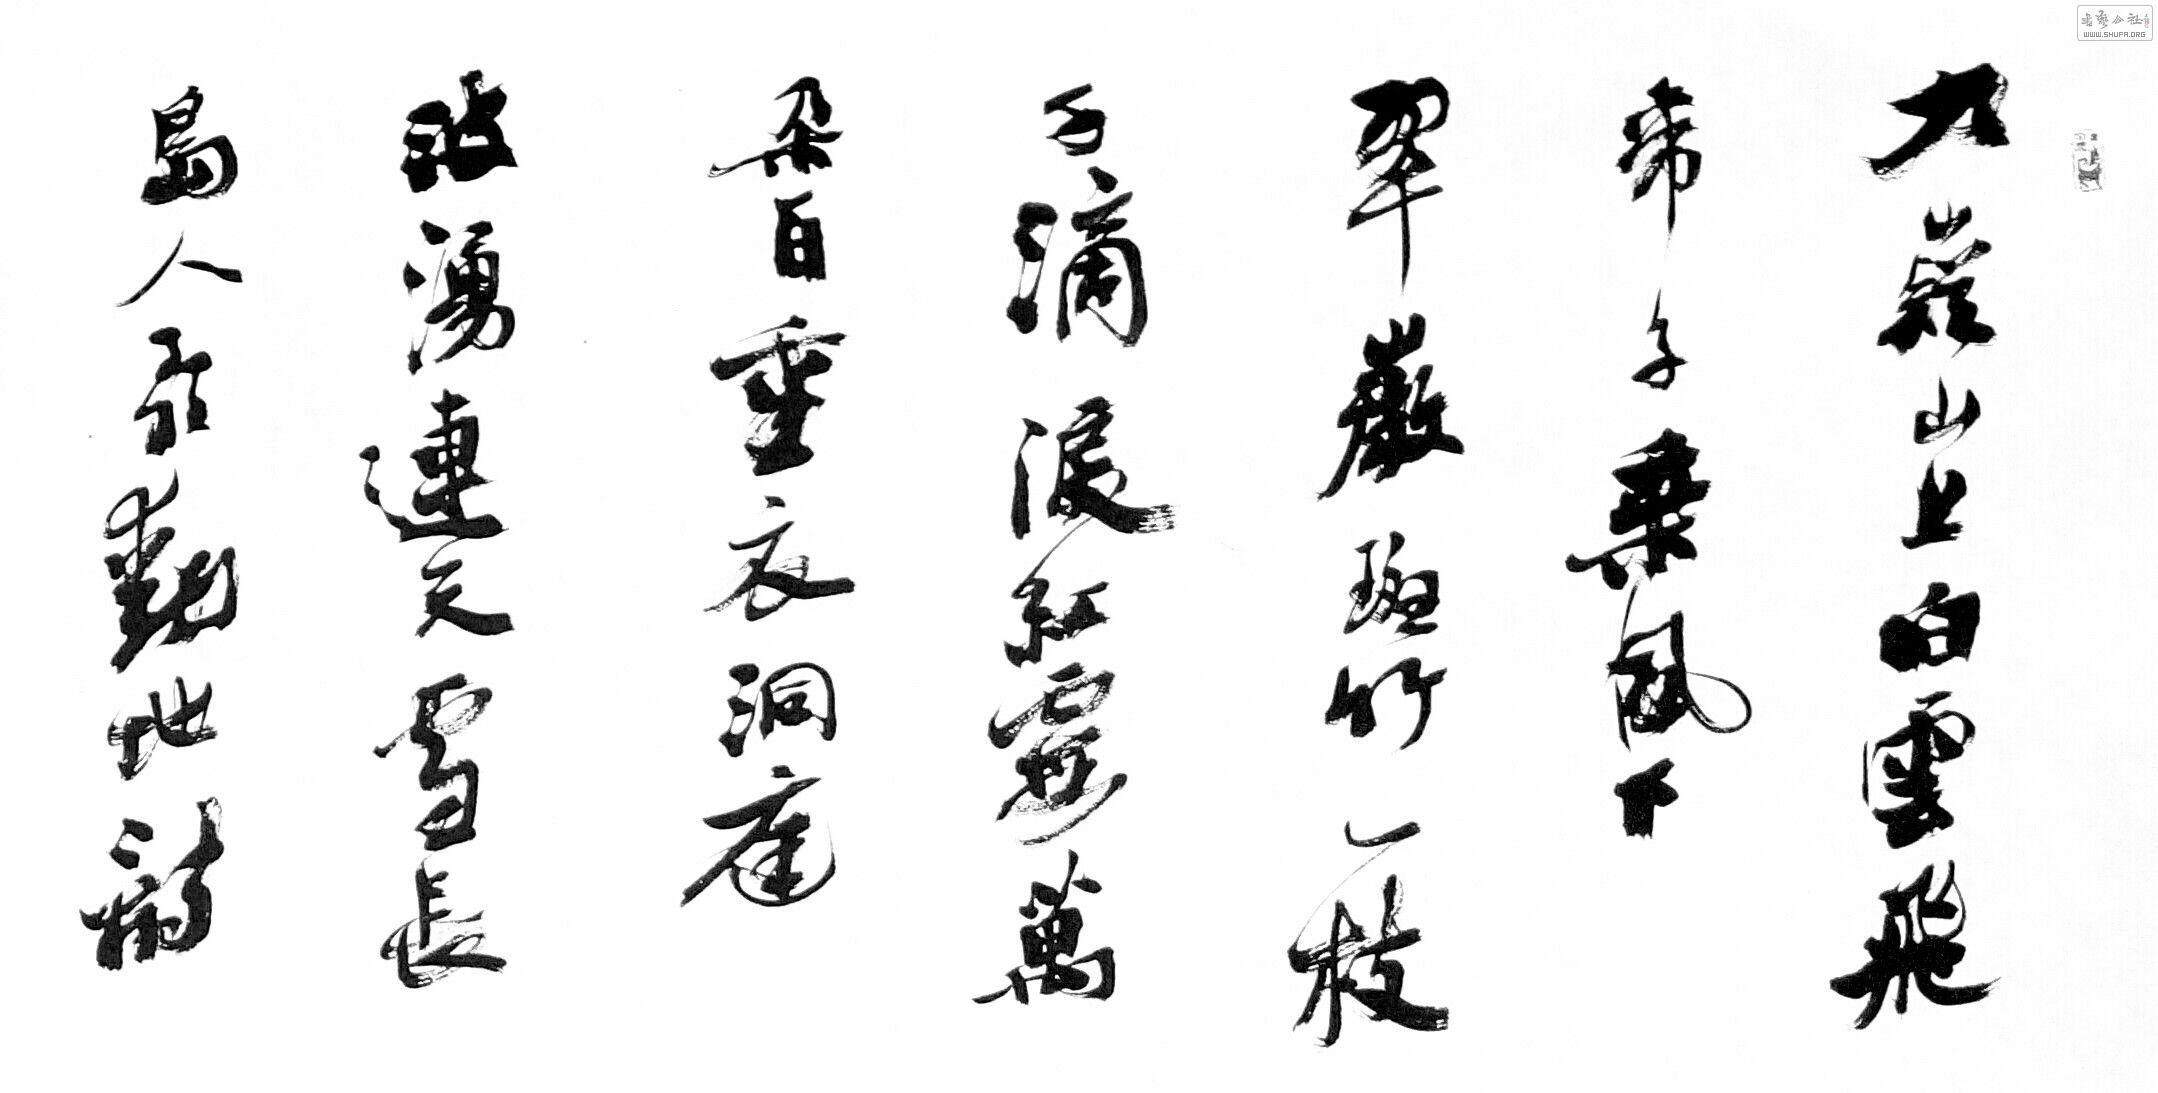 九嶷山上白雲飛
帝子乘風下
翠微斑竹一枝
千滴淚紅霞萬
朵百重衣洞庭
波湧連天雪長
島人歌動地詩
书艺公社
WWW.SHUFA.ORG